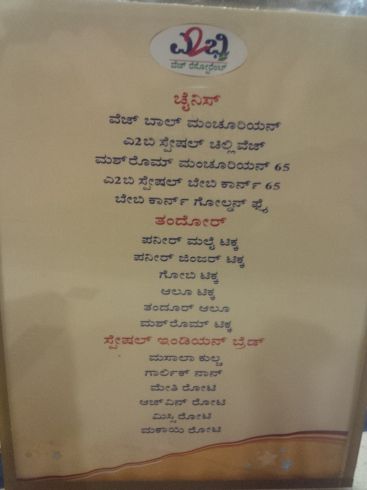 ಎ2ಬಿ
ವೆಜ್ ರೆಸ್ಟೋರೆಂಟ್
ಚೈನಿಸ್
ವೆಜ್ ಬಾಲ್ ಮಂಚೂರಿಯನ್
ಎ2ಬಿ ಸ್ಪೇಷಲ್ ಚಿಲ್ಲಿ ವೆಜ್
ಮಶ್‌ರೊಮ್ ಮಂಚೂರಿಯನ್ 65
ಎ2ಬಿ ಸ್ಪೇಷಲ್ ಬೇಬಿ ಕಾರ್ನ್ 65
ಬೇಬಿ ಕಾರ್ನ್ ಗೋಲ್ಡನ್ ಫ್ರೈ
ತಂದೋರ್
ಪನೀರ್ ಮಲೈ ಟಿಕ್ಕ
ಪನೀರ್ ಜಿಂಜರ್ ಟಿಕ್ಕ
ಗೋಬಿ ಟಿಕ್ಕ
ಆಲೂ ಟಿಕ್ಕ
ತಂದೂರ್ ಆಲೂ
ಮಶ್‌ರೊಮ್ ಟಿಕ್ಕ
ಸ್ಪೇಷಲ್ ಇಂಡಿಯನ್ ಬ್ರೆಡ್
ಮಸಾಲಾ ಕುಲ್ಚ
ಗಾರ್ಲಿಕ್ ನಾನ್
ಮೇತಿ ರೋಟಿ
ಆಜ್‌ವಿನ್ ರೋಟಿ
ಮಿಸ್ಸಿ ರೋಟಿ
ಮಕಾಯಿ ರೋಟಿ